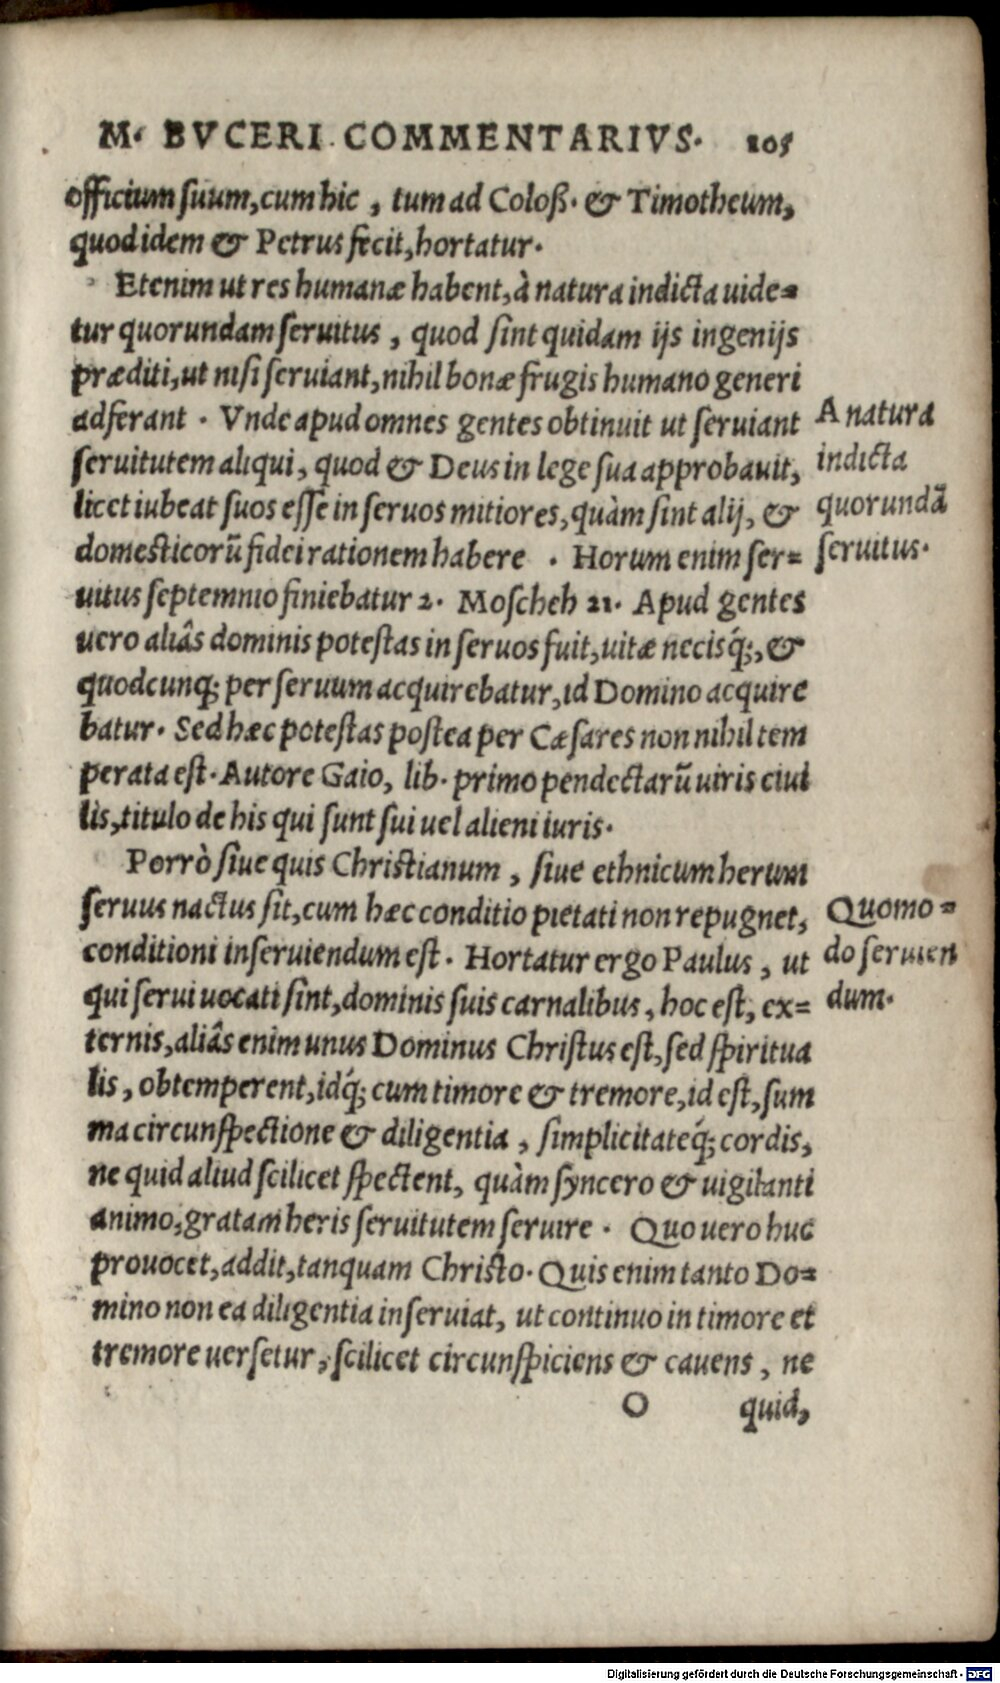 M. BVCERI COMMENTARIVS. 105
officium suum, cum hic, tum ad Coloß. & Timotheum,
quod idem & Petrus fecit, hortatur.
Etenim ut res humanæ habent, à natura indicta uide=
tur quorundam seruitus, quod sint quidam ijs ingenijs
præditi, ut nisi seruiant, nihil bonæ frugis humano generi
adferant. Vnde apud omnes gentes obtinuit ut seruiant
seruitutem aliqui, quod & Deus in lege sua approbauit,
licet iubeat suos esse in seruos mitiores, quàm sint alij, &
domesticorũ fidei rationem habere. Horum enim ser=
uitus septennio finiebatur 2. Moscheh 21. Apud gentes
uero aliâs dominis potestas in seruos fuit, uitæ necisq́;, &
quodcunq; per seruum acquirebatur, id Domino acquire
batur. Sed hæc potestas postea per Cæsares non nihil tem
perata est. Autore Gaio, lib. primo pendectarũ uiris ciui
lis, titulo de his qui sunt sui uel alieni iuris.
Porrò siue quis Christianum, siue ethnicum herum
seruus nactus sit, cum hæc conditio pietati non repugnet,
conditioni inseruiendum est. Hortatur ergo Paulus, ut
qui serui uocati sint, dominis suis carnalibus, hoc est, ex=
ternis, aliâs enim unus Dominus Christus est, sed spiritua
lis, obtemperent, idq́; cum timore & tremore, id est, sum
ma circunspectione & diligentia, simplicitateq́; cordis,
ne quid aliud scilicet spectent, quàm syncero & uigilanti
animo, gratam heris seruitutem seruire. Quo uero huc
prouocet, addit, tanquam Christo. Quis enim tanto Do=
mino non ea diligentia inseruiat, ut continuo in timore et
tremore uersetur, scilicet circunspiciens & cauens, ne
O quid,
A natura
indicta
quorundã
seruitus.
Quomo=
do seruien
dum.
Digitalisierung gefördert durch die Deutsche Forschungsgemeinschaft - DFG